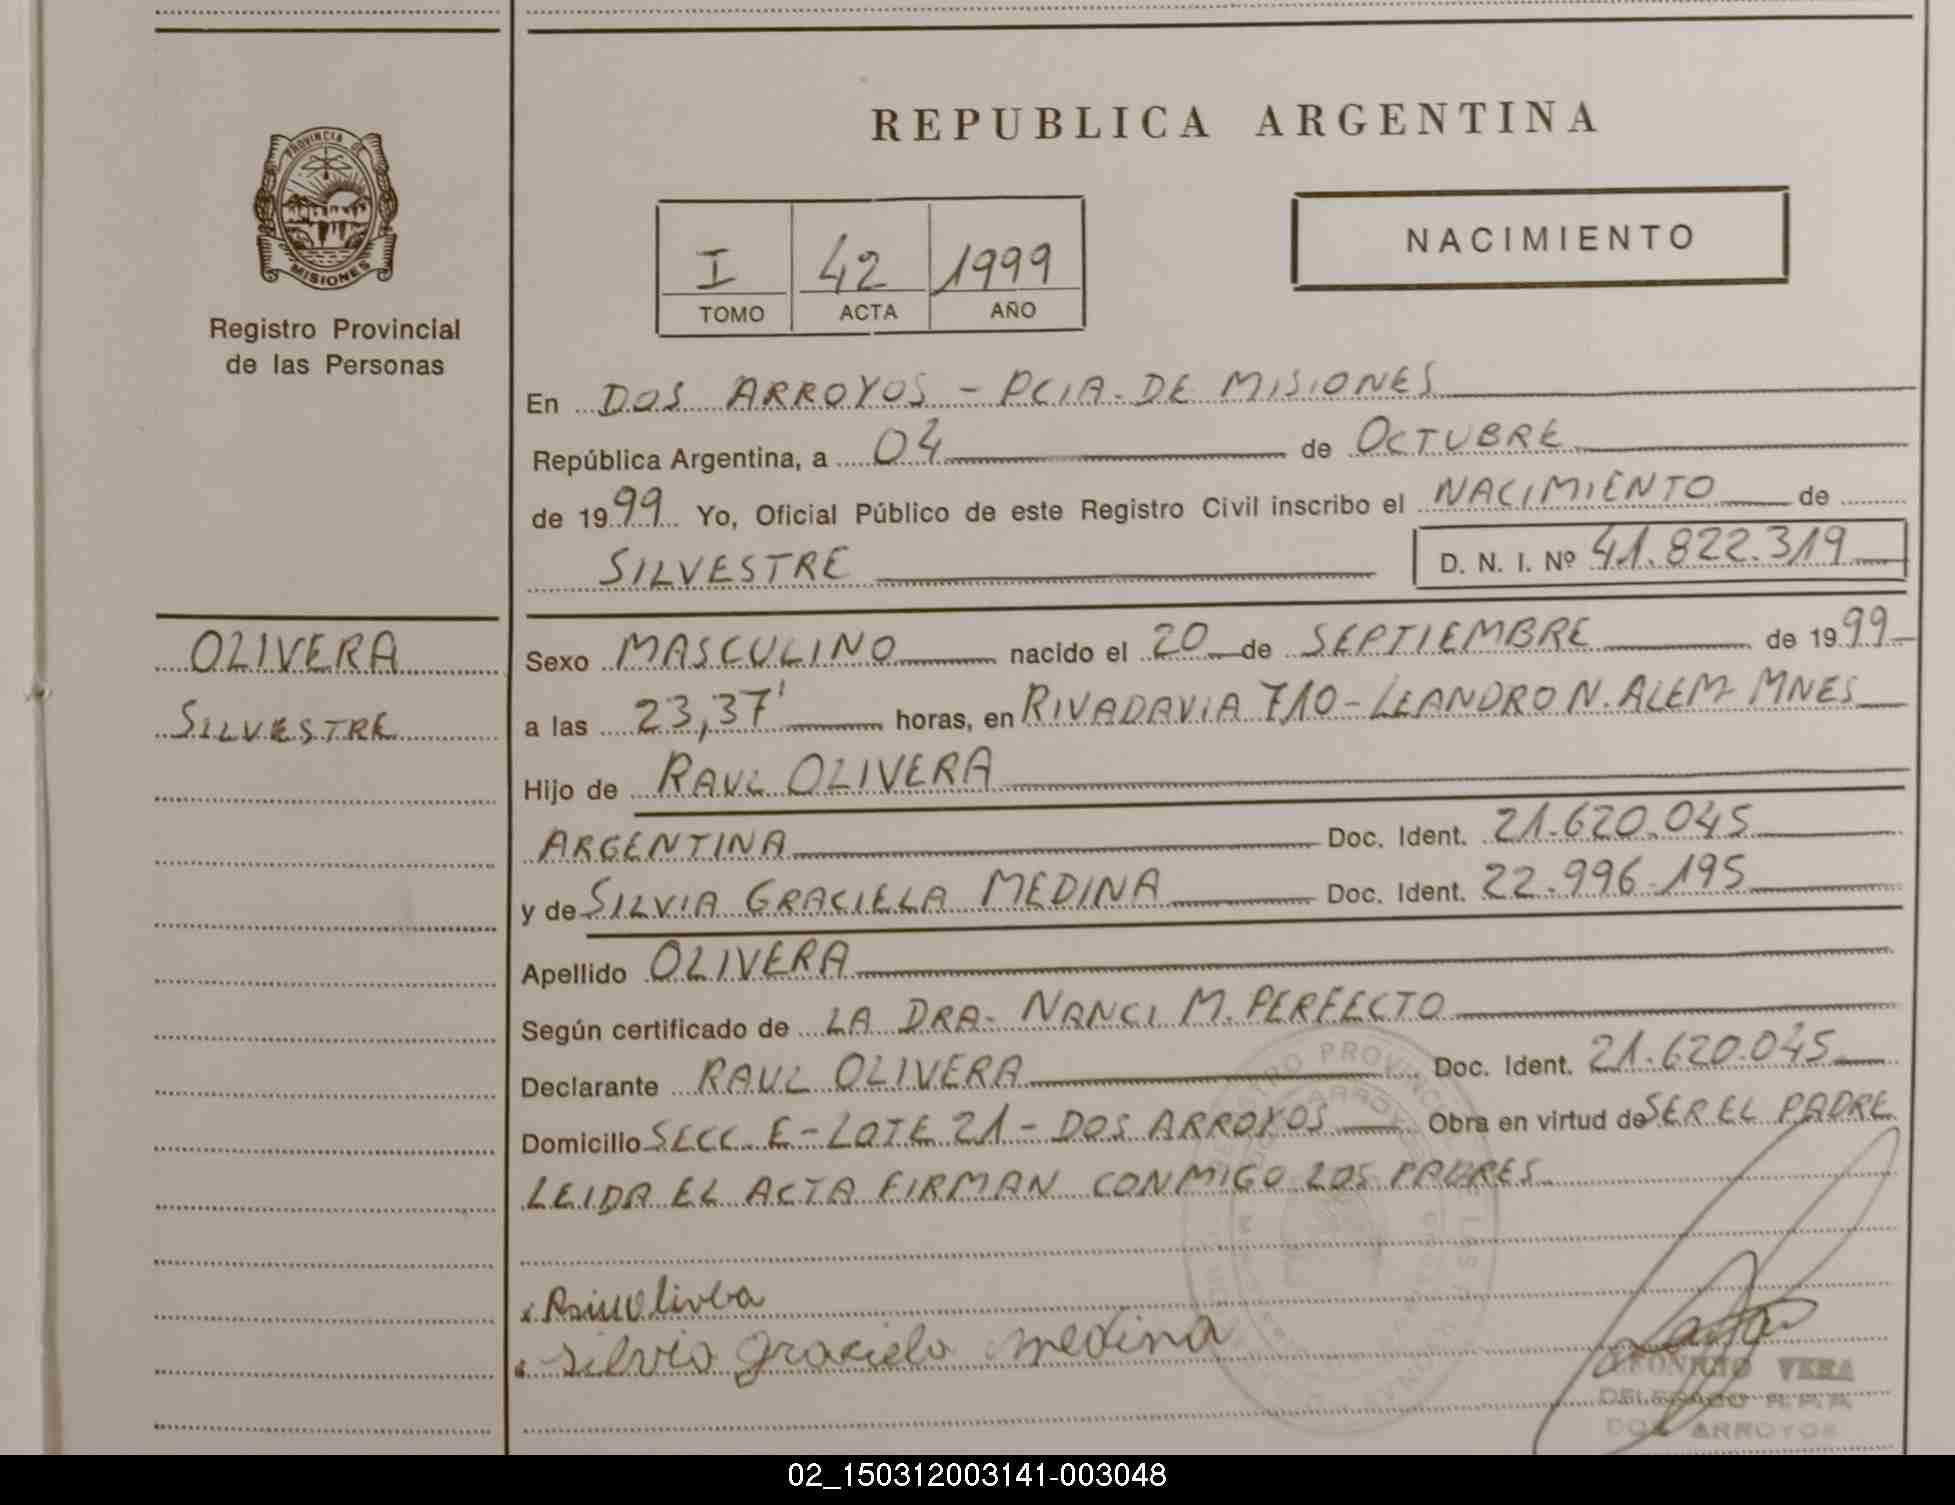 REPUBLICA ARGENTINA
PROVINCIA DE
MISIONES
Registro Provincial
de las Personas
I 42 1999
TOMO ACTA AÑO
NACIMIENTO
En DOS ARROYOS - PCIA. DE MISIONES
República Argentina, a 04 de OCTUBRE
de 1999 Yo, Oficial Público de este Registro Civil inscribo el NACIMIENTO de
SILVESTRE D. N. I. Nº 41.822.319
OLIVERA
SILVESTRE
Sexo MASCULINO nacido el 20 de SEPTIEMBRE de 1999
a las 23,37' horas, en RIVADAVIA 710 - LEANDRO N. ALEM - MNES
Hijo de RAUL OLIVERA
ARGENTINA Doc. Ident. 21.620.045
y de SILVIA GRACIELA MEDINA Doc. Ident. 22.996.195
Apellido OLIVERA
Según certificado de LA DRA. NANCI M. PERFECTO
Declarante RAUL OLIVERA Doc. Ident. 21.620.045
Domicilio SECC. E - LOTE 21 - DOS ARROYOS Obra en virtud de SER EL PADRE
LEIDA EL ACTA FIRMAN CONMIGO LOS PADRES
silvia graciela medina
VERA
DELEGADO R. P. P.
DOS ARROYOS
02_150312003141-003048